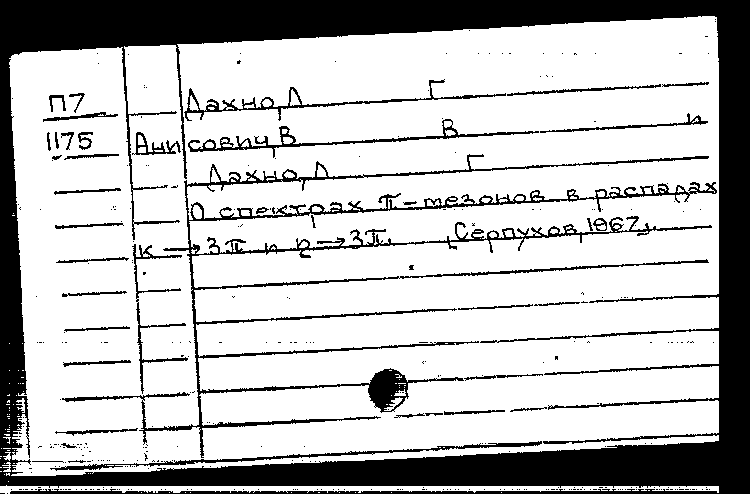 П7 Дахно, Л Г
1175 Анисович, В В и
Дахно, Л Г
О спектрах π-мезонов в распадах
к → 3π и η → 3π. [Серпухов, 1967].